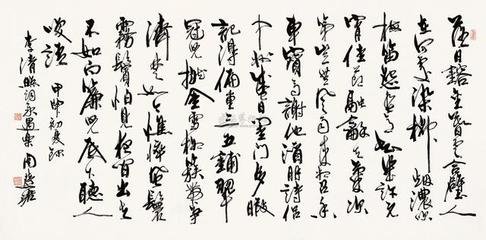 落日鎔金暮雲合璧人
在何處染柳煙濃吹
梅笛怨春意知幾許元
宵佳節融和天氣次
第豈無風雨來相召香
車寶馬謝他酒朋詩侶
中州盛日閨門多暇
記得偏重三五鋪翠
冠兒撚金雪柳簇帶爭
濟楚如今憔悴風鬟
霧鬢怕見夜間出去
不如向簾兒底下聽人
笑語 甲申初夏
李清照詞永遇樂 周